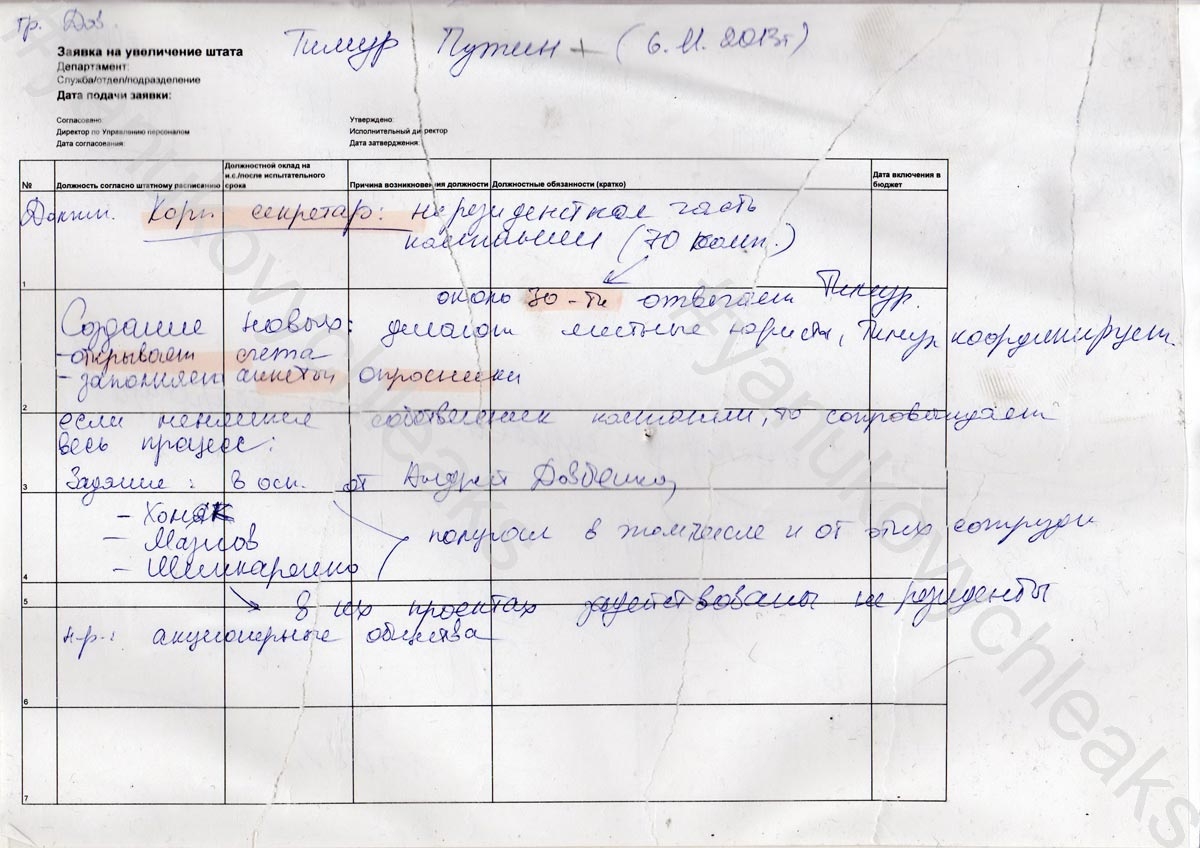 гр. Дов.
Тимур Путин + (6.11.2013г)
Заявка на увеличение штата
Департамент:
Служба/отдел/подразделение
Дата подачи заявки:
Согласовано:
Директор по Управлению персоналом
Дата согласования:
Утверждено:
Исполнительный директор
Дата затверждения:
№
Должность согласно штатному расписанию
Должностной оклад на и.с./после испытательного срока
Причина возникновения должности
Должностные обязанности (кратко)
Дата включения в бюджет
Должн. Корп секретарь: нерезидентская часть
компании (70 комп.)
1
около 30-ти отвечает Тимур.
Создание новых: делают местные юристы, Тимур координирует.
- открывает счета
- заполняет анкеты опросники
2
если меняется собственник компании, то сопровождает
весь процесс:
3
Задание: в осн. от Андрей Довбенко,
- Хонак
- Мазнов
- Шинкаренко
получал в том числе и от этих сотрудн
4
5
в их проектах задействованы не резиденты
н-р-: акционерные общества
6
7
#yanukovychleaks
#yanukovychleaks